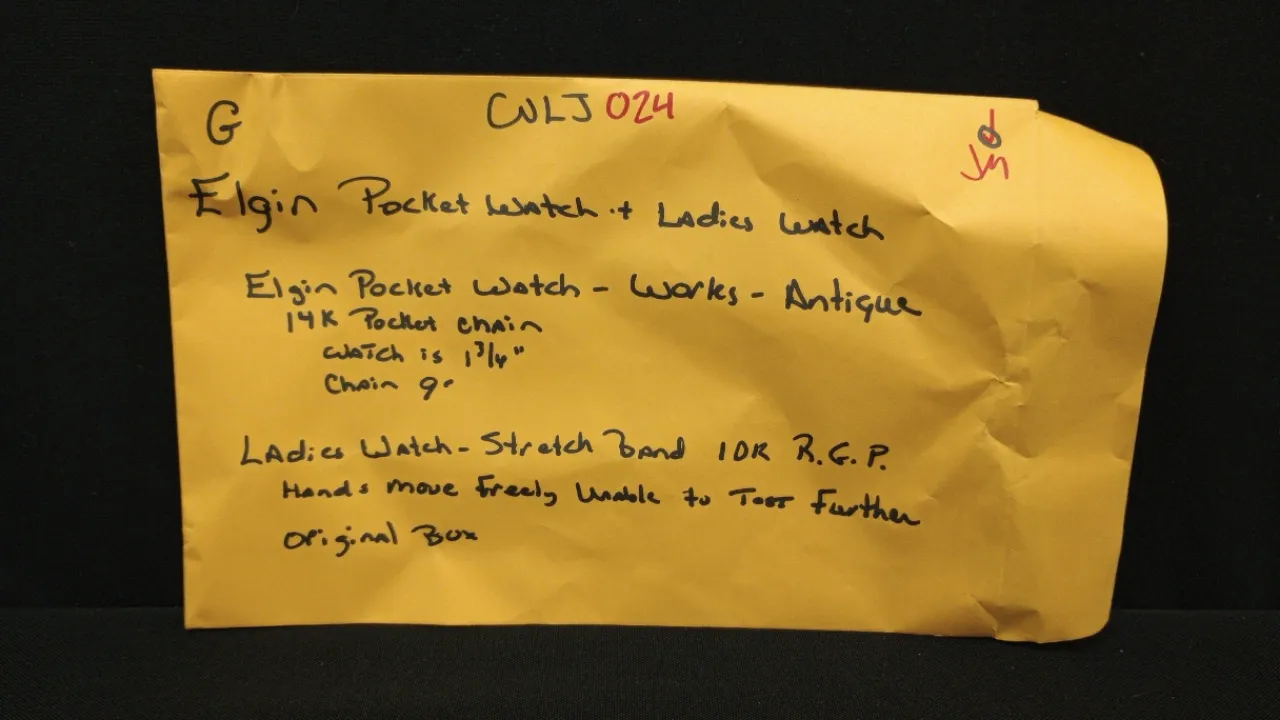 G CWLJ 024
Elgin Pocket Watch + Ladies Watch
Elgin Pocket Watch - Works - Antique
14K Pocket Chain
Watch is 1 3/4"
Chain 9"
Ladies Watch - Stretch Band 10K R.G.P.
Hands move freely Unable to Test Further
Original Box